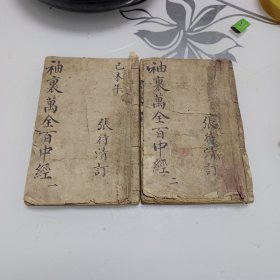 袖裏萬全百中經 一
己未年
張符清訂
袖裏萬全百中經 二
張符清訂